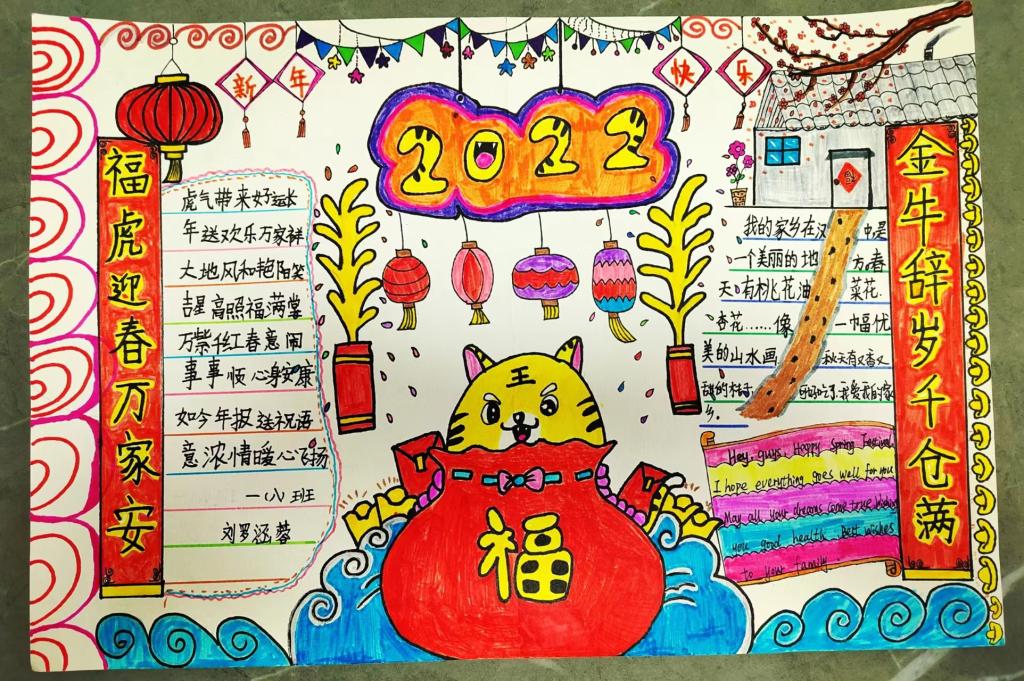 新年快乐
2022
福虎迎春万家安
虎气带来好运长
年送欢乐万家祥
大地风和艳阳笑
吉星高照福满堂
万紫千红春意闹
事事顺心身安康
如今年报送祝语
意浓情暖心飞扬
一八班
刘罗涵蓉
王
福
我的家乡在汉中是
一个美丽的地方。春
天有桃花油菜花
杏花……像一幅优
美的山水画 秋天有又香又
好吃了.我爱我的家
乡。
Hey, guys, Happy Spring Festival
I hope everything goes well for you
May all your dreams come true. Wishing
you good health. Best wishes
to your family.
金牛辞岁千仓满